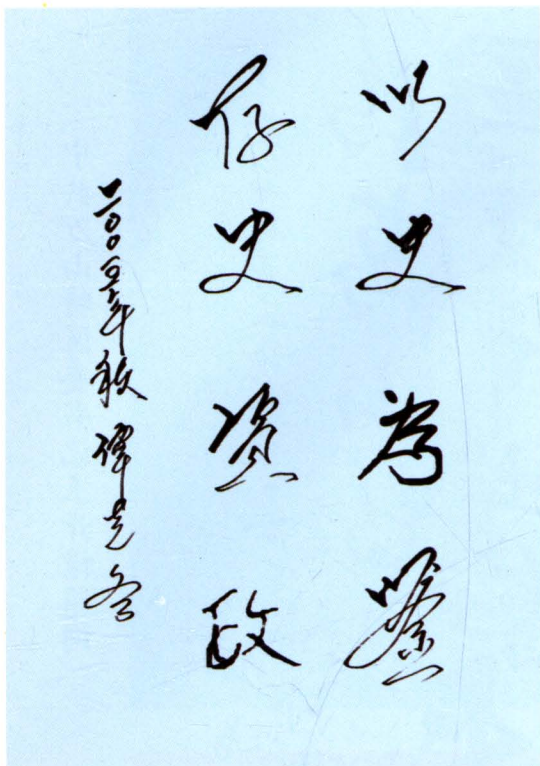 以史为鉴
存史资政
二〇〇五年秋